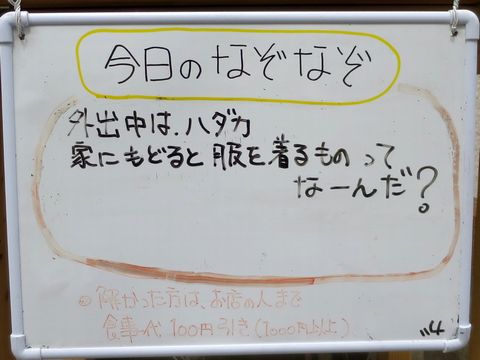 今日のなぞなぞ
外出中は、ハダカ
家にもどると服を着るものって
なーんだ?
◎解かった方は、お店の人まで
食事代100円引き(1000円以上)
"4